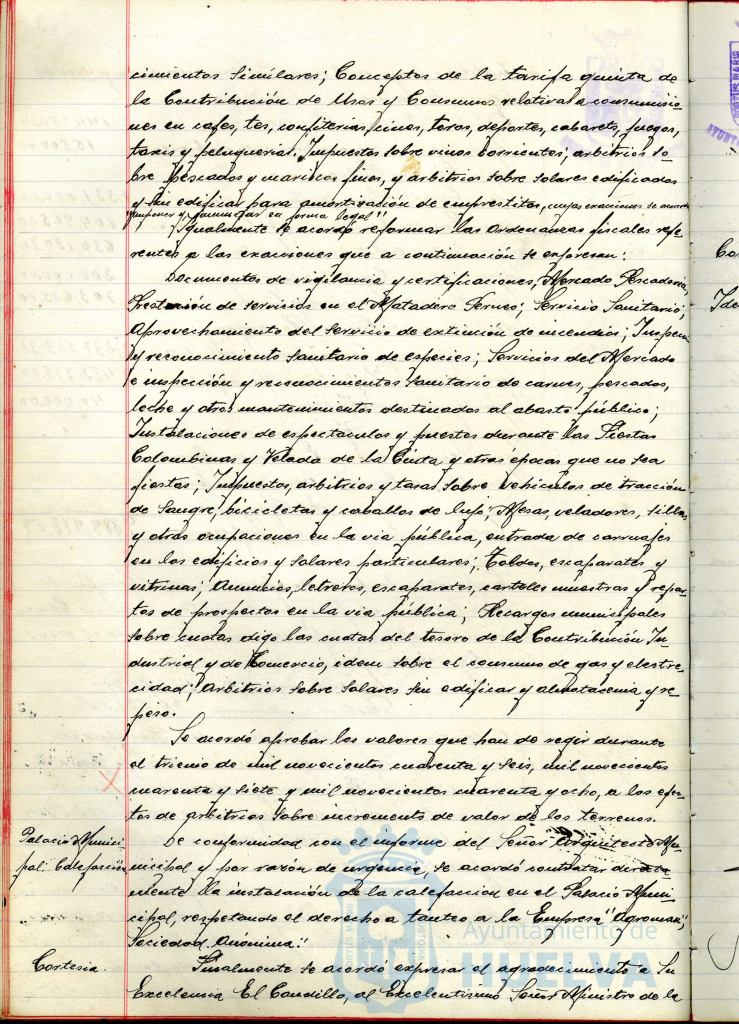 cimientos similares; Conceptos de la tarifa quinta de
la Contribución de Usos y Consumos relativa a consumisio-
nes en cafes, tes, confiterias, cines, toros, deportes, cabarets, juegos,
taxis y peluquerias. Impuestos sobre vinos corrientes; arbitrios so-
bre pescados y mariscos finos, y arbitrios sobre solares edificados
y sin edificar para amortización de emprestitos, cuyas exacciones se acuerda
imponer y formular en forma legal"
Igualmente se acordó reformar las Ordenanzas fiscales refe-
rentes a las exacciones que a continuación se expresan:
Documentos de vigilancia y certificaciones, Mercado Pescaderia,
Prestación de servicios en el Matadero Ferneo; Servicio Sanitario;
Aprovechamiento del servicio de extinción de incendios; Inspeccn
y reconocimiento sanitario de especies; Servicios del Mercado
e inspección y reconocimientos sanitario de carnes, pescados,
leche y otros mantenimientos destinados al abasto público;
Instalaciones de espectaculos y puestos durante las Fiestas
Colombinas y Velada de la Cinta y otras épocas que no sea
fiestas; Impuestos, arbitrios y tasas sobre vehiculos de tracción
de sangre, bicicletas y caballos de lujo; Mesas, veladores, sillas
y otras ocupaciones en la via pública, entrada de carruajes
en los edificios y solares particulares; Toldos, escaparates y
vitrinas; Anuncios, letreros, escaparates, carteles muestras y repar-
tos de prospectos en la via pública; Recargos municipales
sobre cuotas digo las cuotas del tesoro de la Contribución In-
dustrial y de Comercio, idem sobre el consumo de gas y electri-
cidad; Arbitrios sobre solares sin edificar y almotacenia y re-
peso.
Se acordó aprobar los valores que han de regir durante
el trienio de mil novecientos cuarenta y seis, mil novecientos
cuarenta y siete y mil novecientos cuarenta y ocho, a los efec-
tos de arbitrios sobre incremento de valor de los terrenos.
Palacio Munici-
pal: Calefacción
De conformidad con el informe del Señor Arquitecto Mu-
nicipal y por razón de urgencia, se acordó contratar directa
mente la instalación de la calefaccion en el Palacio Muni-
cipal, respetando el derecho a tanteo a la Empresa "Agroman,
Sociedad Anónima".
Cortesia.
Finalmente se acordó expresar el agradecimiento a Su
Excelencia El Caudillo, al Excelentisimo Señor Ministro de la
Ayuntamiento de
HUELVA